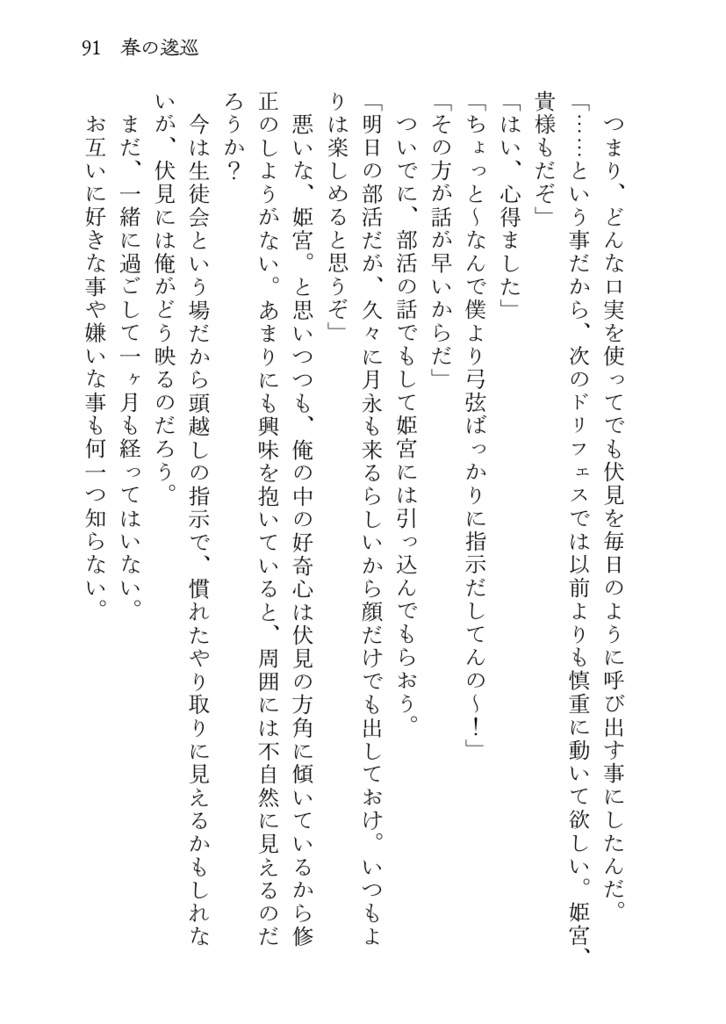 91 春の逡巡
つまり、どんな口実を使ってでも伏見を毎日のように呼び出す事にしたんだ。
「……という事だから、次のドリフェスでは以前よりも慎重に動いて欲しい。姫宮、
貴様もだぞ」
「はい、心得ました」
「ちょっと〜なんで僕より弓弦ばっかりに指示だしてんの〜！」
「その方が話が早いからだ」
ついでに、部活の話でもして姫宮には引っ込んでもらおう。
「明日の部活だが、久々に月永も来るらしいから顔だけでも出しておけ。いつもよ
りは楽しめると思うぞ」
悪いな、姫宮。と思いつつも、俺の中の好奇心は伏見の方角に傾いているから修
正のしようがない。あまりにも興味を抱いていると、周囲には不自然に見えるのだ
ろうか？
今は生徒会という場だから頭越しの指示で、慣れたやり取りに見えるかもしれな
いが、伏見には俺がどう映るのだろう。
まだ、一緒に過ごして一ヶ月も経ってはいない。
お互いに好きな事や嫌いな事も何一つ知らない。